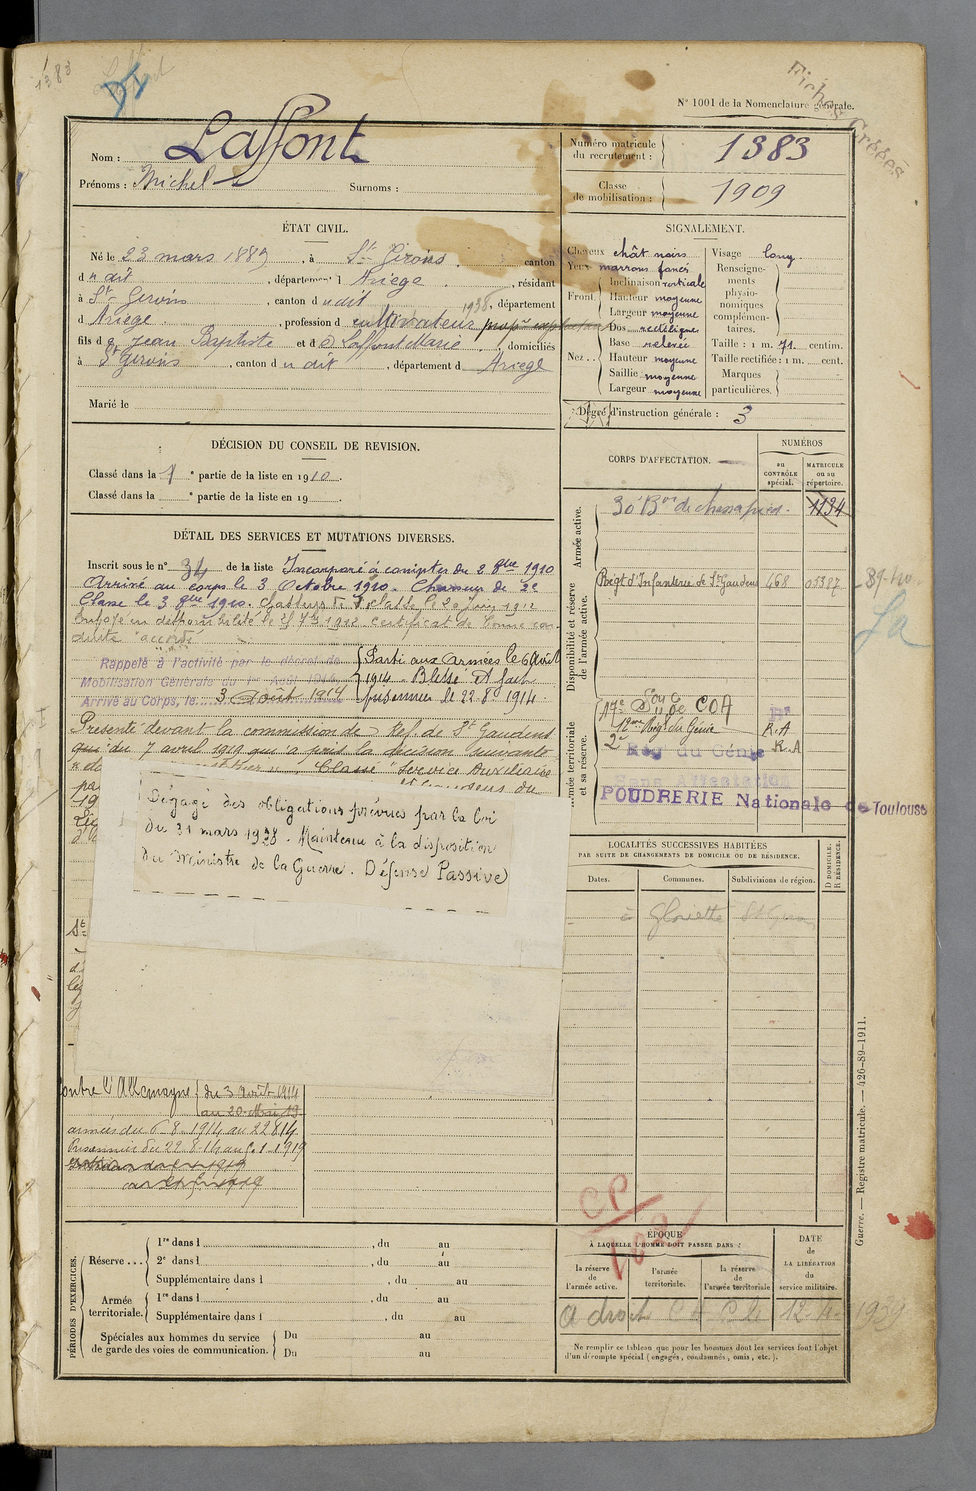 1383
Fichés Créées
N° 1001 de la Nomenclature générale.
Nom : Laffont
Prénoms : Michel Surnoms :
Numéro matricule du recrutement : 1383
Classe de mobilisation : 1909
ÉTAT CIVIL.
Né le 23 mars 1889, à St Girons, canton
d u dit, département d Ariège, résidant
à St Girons, canton d u dit, département
1938
d Ariège, profession d cultivateur
fils d e Jean Baptiste et d e Laffont Marie, domiciliés
à St Girons, canton d u dit, département d Ariège
Marié le
SIGNALEMENT.
Cheveux chât noirs
Yeux marrons foncés
Front Inclinaison verticale
Hauteur moyenne
Largeur moyenne
Nez Dos rectiligne
Base relevée
Hauteur moyenne
Saillie moyenne
Largeur moyenne
Visage long
Renseignements physionomiques complémentaires.
Taille : 1 m. 71 centim.
Taille rectifiée : 1 m. cent.
Marques particulières.
Degré d'instruction générale : 3
DÉCISION DU CONSEIL DE REVISION.
Classé dans la 1e partie de la liste en 1910.
Classé dans la e partie de la liste en 19 .
DÉTAIL DES SERVICES ET MUTATIONS DIVERSES.
Inscrit sous le n° 34 de la liste Incorporé à compter du 2 8bre 1910
Arrivé au corps le 3 Octobre 1910. Chasseur de 2e
Classe le 3 8bre 1910. Chasseur de 1e classe le 20 juin 1912
Envoyé en disponibilité le 25 7bre 1912 Certificat de bonne con-
duite "accordé
Rappelé à l'activité par le décret de
Mobilisation Générale du 1er Août 1914
Arrivé au Corps, le 3 Août 1914
Parti aux armées le 6 Août
1914 - Blessé et fait
prisonnier le 22 8 1914.
Présenté devant la commission de Réf. de St Gaudens
qui du 7 avril 1919 qui a pris la décision suivante
Classé Service Auxiliaire
Dégagé des obligations prévues par la loi
du 31 mars 1928. Maintenu à la disposition
du Ministre de la Guerre. Défense Passive
contre l'Allemagne du 3 août 1914
au 20 Mai 19
armées du 6-8-1914 au 22 8 14
Prisonnier du 22-8-14 au 5-1-1919
CORPS D'AFFECTATION.
NUMÉROS
au CONTRÔLE spécial.
MATRICULE ou au répertoire.
Armée active.
30e Bon de chass à pied. 1134
Disponibilité et réserve de l'armée active.
Régt d'Infanterie de St Gaudens 468 05387
Armée territoriale et sa réserve.
17e S on COA
R.A
2e Rég du Génie R.A
Sans Affectation
POUDRERIE Nationale de Toulouse
LOCALITÉS SUCCESSIVES HABITÉES
PAR SUITE DE CHANGEMENTS DE DOMICILE OU DE RÉSIDENCE.
Dates. Communes. Subdivisions de région.
D DOMICILE.
R RÉSIDENCE.
Guerre. — Registre matricule. — 426-89-1911.
PÉRIODES D'EXERCICES.
Réserve... 1re dans l , du au
2e dans l , du au
Supplémentaire dans l , du au
Armée territoriale. 1re dans l , du au
Supplémentaire dans l , du au
Spéciales aux hommes du service de garde des voies de communication. Du au
Du au
CP
ÉPOQUE
À LAQUELLE L'HOMME DOIT PASSER DANS :
la réserve de l'armée active.
l'armée territoriale.
la réserve de l'armée territoriale
DATE de LA LIBÉRATION du service militaire.
a droit
Ne remplir ce tableau que pour les hommes dont les services font l'objet
d'un décompte spécial (engagés, condamnés, omis, etc.).